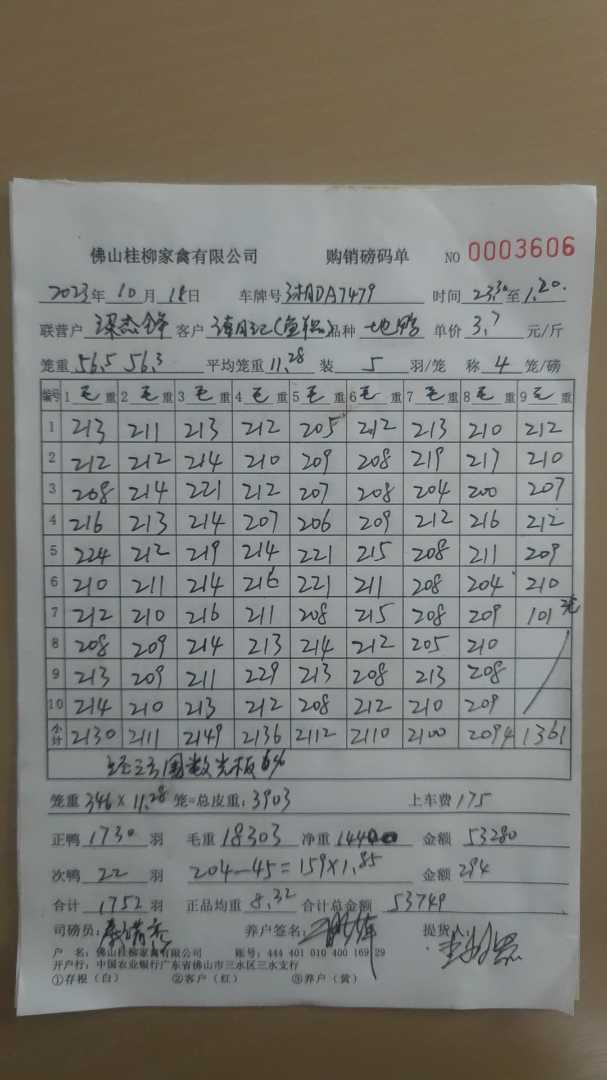 佛山桂柳家禽有限公司 购销磅码单 NO 0003606
2023年 10月 18日 车牌号 湘DA7479 时间 23:30至1:20.
联营户 客户 品种 地鸭 单价 3.7 元/斤
笼重 56.5 56.3 平均笼重 11.28 装 5 羽/笼 称 4 笼/磅
编号 1 毛 重 2 毛 重 3 毛 重 4 毛 重 5 毛 重 6 毛 重 7 毛 重 8 毛 重 9 毛 重
1 213 211 213 212 205 212 213 210 212
2 212 212 214 210 209 208 219 217 210
3 208 214 221 212 207 208 204 200 207
4 216 213 214 207 206 209 212 216 212
5 224 212 219 214 221 215 208 211 209
6 210 211 214 216 221 211 208 204 210
7 212 210 216 211 208 215 208 209 101
8 208 209 214 213 214 212 205 210
9 213 209 211 229 213 208 213 208
10 214 210 213 212 208 212 210 209
小计 2130 2111 2149 2136 2112 2110 2100 2094 1361
笼重 346×11.28 笼=总皮重: 3903 上车费 175
正鸭 1730 羽 毛重 18303 净重 14400 金额 53280
次鸭 22 羽 204-45=159×1.85 金额 294
合计 1752 羽 正品均重 8.32 合计总金额 53749
司磅员: 养户签名: 提货人:
户 名: 佛山桂柳家禽有限公司 账号: 444 401 010 400 169 29
开户行: 中国农业银行广东省佛山市三水区三水支行
①存根(白) ②客户(红) ③养户(黄)